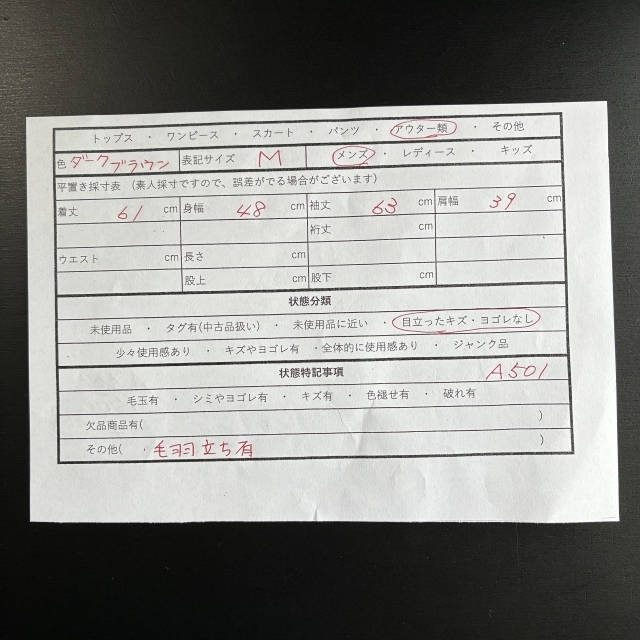 トップス ・ ワンピース ・ スカート ・ パンツ ・ アウター類 ・ その他
色 ダークブラウン 表記サイズ M メンズ ・ レディース ・ キッズ
平置き採寸表 (素人採寸ですので、誤差がでる場合がございます)
着丈 61 cm 身幅 48 cm 袖丈 63 cm 肩幅 39 cm
裄丈 cm
ウエスト cm 長さ cm
股上 cm 股下 cm
状態分類
未使用品 ・ タグ有(中古品扱い) ・ 未使用品に近い ・ 目立ったキズ・ヨゴレなし
少々使用感あり ・ キズやヨゴレ有 ・全体的に使用感あり ・ ジャンク品
状態特記事項 A501
毛玉有 ・ シミやヨゴレ有 ・ キズ有 ・ 色褪せ有 ・ 破れ有
欠品商品有( )
その他( ・ 毛羽立ち有 )